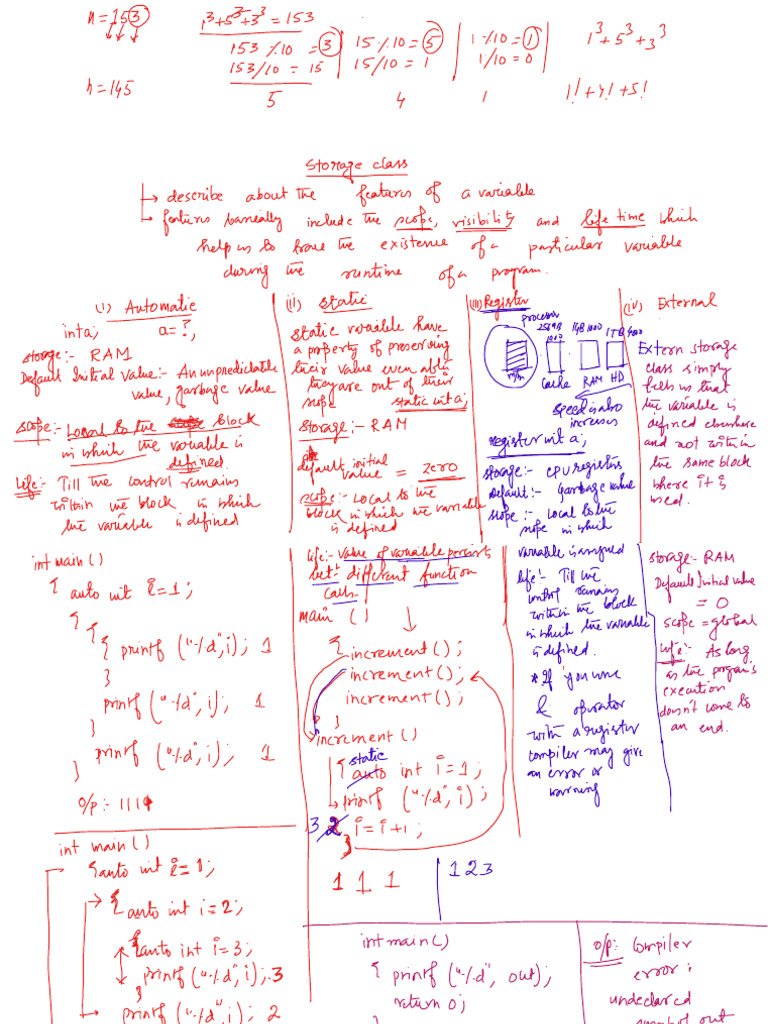 n=153
1³+5³+3³ = 153
153 % 10 = 3
153/10 = 15
15 % 10 = 5
15/10 = 1
1 % 10 = 1
1/10 = 0
1³+5³+3³
n=145
5
4
1
1!+4!+5!
Storage class
↳ describe about the features of a variable
↳ features basically include the scope, visibility and life time which
help us to trace the existence of a particular variable
during the runtime of a program.
(i) Automatic
int a; a=?,
storage:- RAM
Default Initial Value:- An unpredictable
value, garbage value
scope:- Local to the block
in which the variable is
defined.
Life:- Till the control remains
within the block in which
the variable is defined
(ii) Static
Static variable have
a property of preserving
their value even after
they are out of their
scope
static int a;
Storage:- RAM
default initial
value = zero
scope:- Local to the
block in which the variable
is defined
life:- value of variable persists
bet: different function
calls.
(iii) Register
processor
256MB
1GB 1000
1TB
1000
Cache RAM HD
Speed is also
increases
register int a;
storage:- CPU registers
default:- Garbage value
scope:- Local to the
scope in which
variable is assigned
life:- Till the
control remains
within the block
in which the variable
is defined.
*If you use
& operator
with a register
compiler may give
an error or
warning
(iv) External
Extern storage
class simply
tells us that
the variable is
defined elsewhere
and not within
the same block
where it is
used.
storage:- RAM
Default Initial value
= 0
scope = global
Life:- As long
as the program's
execution
doesn't come to
an end.
int main ()
{ auto int i=1;
{
{
{ printf ("%d", i); 1
}
printf ("%d", i); 1
}
printf ("%d", i); 1
}
o/p:- 111
main ()
{ increment ();
increment ();
increment ();
}
increment ()
static
{ auto int i = 1;
printf ("%d", i);
3 2 i = i+1;
}
1 1 1
1 2 3
int main ()
{ auto int i=1;
{ auto int i=2;
{ auto int i=3;
printf ("%d", i); 3
}
printf ("%d", i); 2
int main ()
{ printf ("%d", out);
return 0;
}
o/p: Compiler
error:
undeclared
symbol out